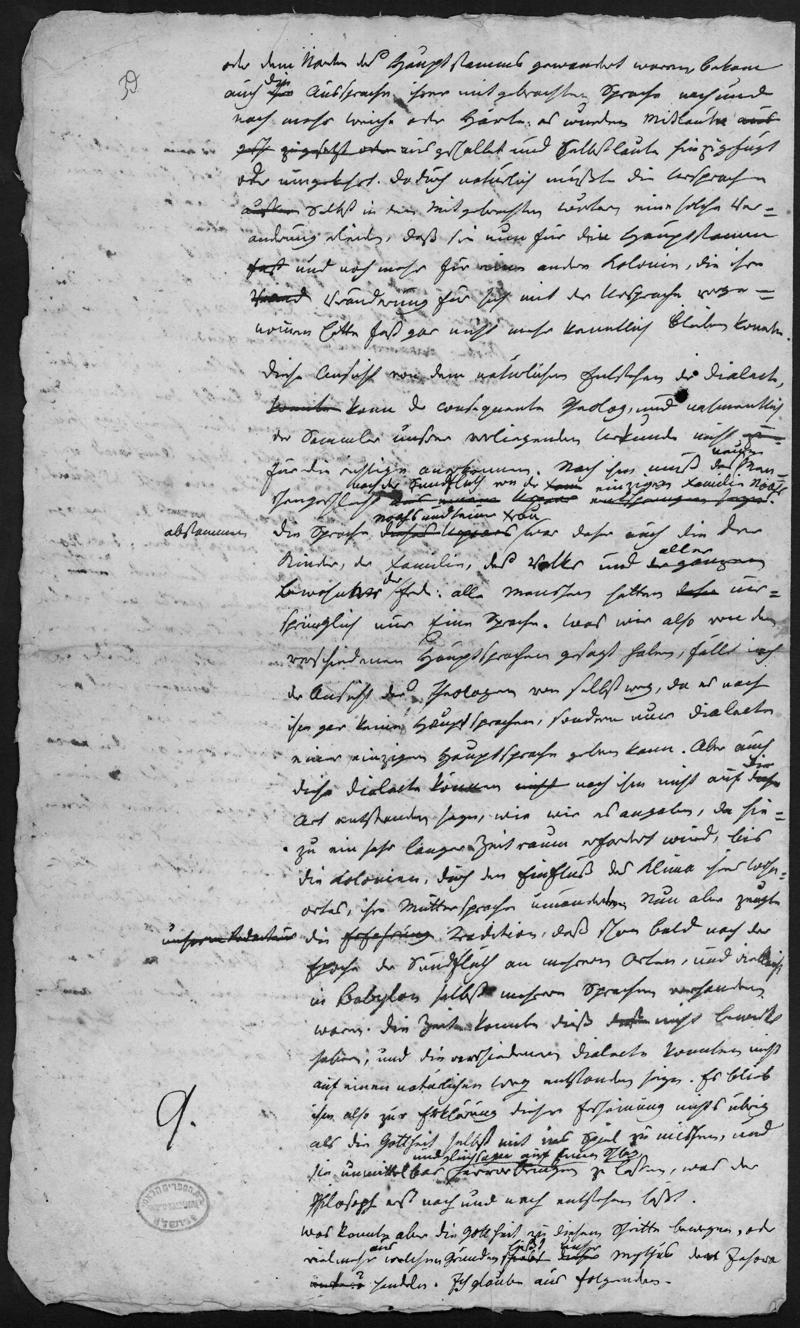 oder dem Norden des Hauptstamms gewandert waren, bekam
auch die Aussprache ihrer mitgebrachten Sprache nach und
nach mehr weiche oder Härte: es wurden Mitlaute aus
zugesetzt oder ausgestoßen und Selbstlaute hinzugefügt
oder umgekehrt. Dadurch natürlich mußte die Ursprache
selbst in den mitgebrachten Wurzeln eine solche Ver=
änderung leiden, daß sie nun für die Hauptstamm
fast und noch mehr für eine andere Kolonie, die ihre
Veränderung für sich mit der Ursprache vorge=
nommen hatte fast gar nicht mehr kenntlich bleiben konnte.
Diese Ansicht von dem natürlichen Entstehen der Dialecte,
konnte kann der consequente Theolog, und namentlich
der Sammler unserer vorliegenden Urkunde nicht
für die richtige anerkennen. Nach ihm muß das ganze Men=
schengeschlecht nach der Sündfluth von der einzigen Familie Noahs
abstammen
die Sprache Noahs und seiner Frau war daher auch die der
Kinder, der Familie, des Volks und aller
Bewohner der Erde: alle Menschen hatten ur=
sprünglich nur Eine Sprache. Was wir also von den
verschiedenen Hauptsprachen gesagt haben, fällt nach
der Ansicht des Theologen von selbst weg, da es nach
ihm gar keine Hauptsprachen, sondern nur Dialecte
einer einzigen Hauptsprache geben kann. Aber auch
diese Dialecte können nicht nach ihm nicht auf die
Art entstanden seyn, wie wir es angaben, da hie=
zu ein sehr langer Zeitraum erfordert wird, bis
die Kolonien, durch den Einfluß des Klima ihres Wohn=
ortes, ihre Muttersprache umänderten. Nun aber zeugte
die Erfahrung Tradition, daß schon bald nach der
Epoche der Sündfluth an mehrern Orten, und vielleicht
in Babylon selbst mehrere Sprachen vorhanden
waren. Die Zeit konnte dieß nicht bewirkt
haben, und die verschiedenen Dialecte konnten nicht
auf einen natürlichen Weg entstanden seyn. Es blieb
9.
ihm also zur Erklärung dieser Erscheinung nichts übrig
als die Gottheit selbst mit ins Spiel zu mischen, und
und gleichsam auf Einen
sie unmittelbar hervorbringen zu lassen, was der
Philosoph erst nach und nach entstehen läßt.
Was konnte aber die Gottheit zu diesem Schritte bewegen, oder
vielmehr aus welchen Gründen läßt unser Mythus den Jehova
handeln. Ich glaube aus folgenden.